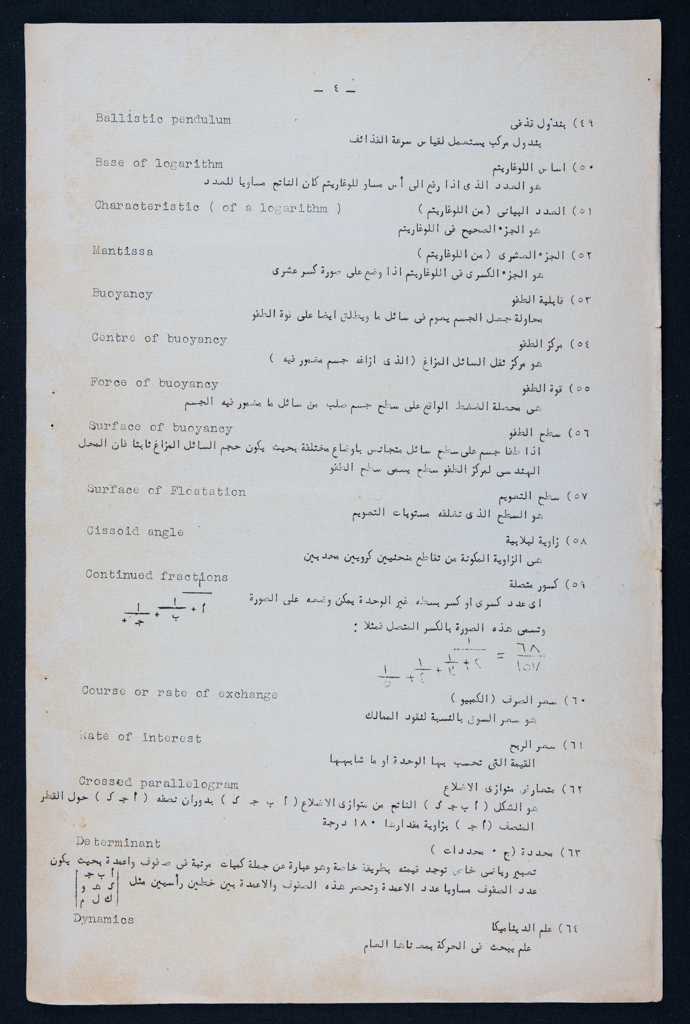 — ٤ —
٤٩) بندول قذفى Ballistic pendulum
بندول مركب يستعمل لقياس سرعة القذائف
٥٠) اساس اللوغاريتم Base of logarithm
هو العدد الذى اذا رفع الى أس مساو للوغاريتم كان الناتج مساويا للعدد
٥١) العدد البيانى (من اللوغاريتم) Characteristic ( of a logarithm )
هو الجزء الصحيح فى اللوغاريتم
٥٢) الجزء العشرى (من اللوغاريتم) Mantissa
هو الجزء الكسرى فى اللوغاريتم اذا وضع على صورة كسر عشرى
٥٣) قابلية الطفو Buoyancy
محاولة جعل الجسم يعوم فى سائل ما ويطلق ايضا على قوة الطفو
٥٤) مركز الطفو Centre of buoyancy
هو مركز ثقل السائل المزاغ (الذى ازاغه جسم مغمور فيه )
٥٥) قوة الطفو Force of buoyancy
هى محصلة الضغط الواقع على سطح جسم صلب من سائل ما مغمور فيه الجسم
٥٦) سطح الطفو Surface of buoyancy
اذا طفا جسم على سطح سائل متجانس باوضاع مختلفة بحيث يكون حجم السائل المزاغ ثابتا فان المحل
الهندسى لمركز الطفو سطح يسمى سطح الطفو
٥٧) سطح التعويم Surface of Floatation
هو السطح الذى تغلفه مستويات التعويم
٥٨) زاوية لبلابية Cissoid angle
هى الزاوية المكونة من تقاطع منحنيين كرويين محدبين
٥٩) كسور متصلة Continued fractions
اى عدد كسرى او كسر بسطه غير الوحدة يمكن وضعه على الصورة
١
أ + ١
ب + ١
جـ +
وتسمى هذه الصورة بالكسر المتصل فمثلا :
٦٨ = ١
١٥٧ ٢ + ١
٣ + ١
٤ + ١
٥
٦٠) سعر الصرف (الكمبيو) Course or rate of exchange
هو سعر السوق بالنسبة لنقود الممالك
٦١) سعر الربح Rate of interest
القيمة التى تحسب بها الوحدة او ما شابهها
٦٢) متعارض متوازى الاضلاع Crossed parallelogram
هو الشكل ( أ ب جـ د ) الناتج من متوازى الاضلاع ( أ ب جـ د ) بدوران نصفه ( أ جـ د ) حول القطر
المنصف ( أ جـ ) بزاوية مقدارها ١٨٠ درجة
٦٣) محددة (ج ٠ محددات ) Determinant
تعبير رياضى خاص توجد قيمته بطريقة خاصة وهو عبارة عن جملة كميات مرتبة فى صفوف واعمدة بحيث يكون
عدد الصفوف مساويا عدد الاعمدة وتحصر هذه الصفوف والاعمدة بين خطين رأسيين مثل
أ ب جـ
د هـ و
ك ل م
٦٤) علم الديناميكا Dynamics
علم يبحث فى الحركة بمعناها العام